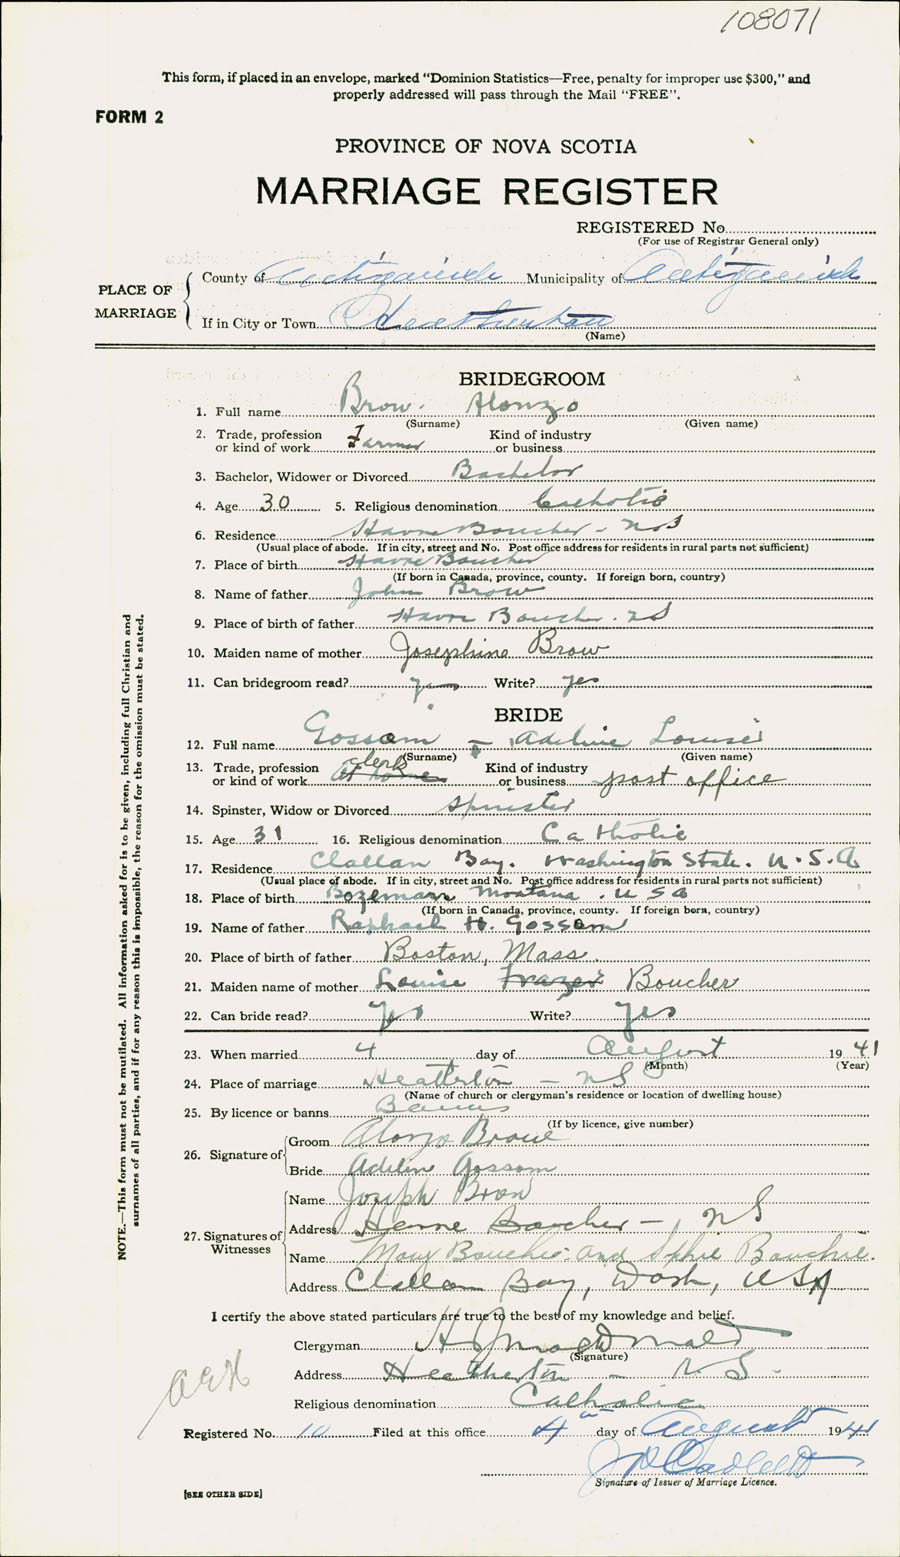 108071
This form, if placed in an envelope, marked “Dominion Statistics—Free, penalty for improper use $300,” and
properly addressed will pass through the Mail “FREE”.
FORM 2
PROVINCE OF NOVA SCOTIA
MARRIAGE REGISTER
REGISTERED No
(For use of Registrar General only)
PLACE OF MARRIAGE
County of Antigonish Municipality of Antigonish
If in City or Town Heatherton
(Name)
BRIDEGROOM
1. Full name Brow. Alonzo
(Surname) (Given name)
2. Trade, profession or kind of work Farmer Kind of industry or business
3. Bachelor, Widower or Divorced Bachelor
4. Age 30 5. Religious denomination Catholic
6. Residence Havre Boucher - NS
(Usual place of abode. If in city, street and No. Post office address for residents in rural parts not sufficient)
7. Place of birth Havre Boucher
(If born in Canada, province, county. If foreign born, country)
8. Name of father John Brow
9. Place of birth of father Havre Boucher. NS
10. Maiden name of mother Josephine Brow
11. Can bridegroom read? yes Write? yes
BRIDE
12. Full name Gossom - Adeline Louise
(Surname) (Given name)
13. Trade, profession or kind of work At home clerk Kind of industry or business post office
14. Spinster, Widow or Divorced Spinster
15. Age 31 16. Religious denomination Catholic
17. Residence Clallam Bay. Washington State. U.S.A
(Usual place of abode. If in city, street and No. Post office address for residents in rural parts not sufficient)
18. Place of birth Bozeman Montana. U S a
(If born in Canada, province, county. If foreign born, country)
19. Name of father Raphael H. Gossom
20. Place of birth of father Boston, Mass.
21. Maiden name of mother Louise Frazer Boucher
22. Can bride read? Yes Write? yes
23. When married 4 day of August 1941
(Month) (Year)
24. Place of marriage Heatherton - NS
(Name of church or clergyman's residence or location of dwelling house)
25. By licence or banns Banns
(If by licence, give number)
26. Signature of
Groom Alonzo Browe
Bride Adeline Gossom
27. Signatures of Witnesses
Name Joseph Brow
Address Havre Boucher - NS
Name Mary Boucher and Sophie Bouchie.
Address Clallam Bay, Wash, USA
I certify the above stated particulars are true to the best of my knowledge and belief.
Clergyman H J MacDonald
(Signature)
Address Heatherton - N.S.
Religious denomination Catholic
Registered No. 10 Filed at this office 4th day of August 1941
Signature of Issuer of Marriage Licence.
[SEE OTHER SIDE]
NOTE.—This form must not be mutilated. All information asked for is to be given, including full Christian and
surnames of all parties, and if for any reason this is impossible, the reason for the omission must be stated.